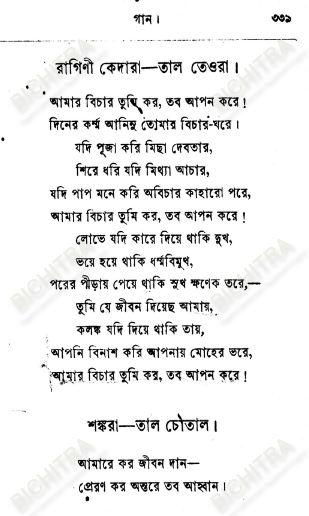 গান। ৩৩৯
রাগিণী কেদারা—তাল তেওরা।
আমার বিচার তুমি কর, তব আপন করে!
দিনের কর্ম্ম আনিনু তোমার বিচার-ঘরে।
যদি পূজা করি মিছা দেবতার,
শিরে ধরি যদি মিথ্যা আচার,
যদি পাপ মনে করি অবিচার কাহারো পরে,
আমার বিচার তুমি কর, তব আপন করে!
লোভে যদি কারে দিয়ে থাকি দুখ,
ভয়ে হয়ে থাকি ধর্ম্মবিমুখ,
পরের পীড়ায় পেয়ে থাকি সুখ ক্ষণেক তরে,—
তুমি যে জীবন দিয়েছ আমায়,
কলঙ্ক যদি দিয়ে থাকি তায়,
আপনি বিনাশ করি আপনায় মোহের ভরে,
আমার বিচার তুমি কর, তব আপন করে!
শঙ্করা—তাল চৌতাল।
আমারে কর জীবন দান—
প্রেরণ কর অন্তরে তব আহ্বান।
BICHITRA